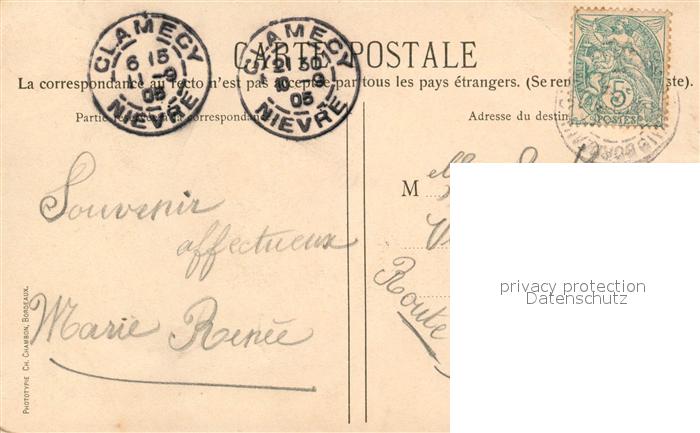 CARTE POSTALE
La correspondance au recto n'est pas acceptée par tous les pays étrangers. (Se ren
Partie réservée à la correspondance
Adresse du destin
CLAMECY
6 15
11 -9
05
NIEVRE
CLAMECY
21 30
10 -9
05
NIEVRE
5c
POSTES
M
Souvenir
affectueux
Marie Renée
Route
PHOTOTYPIE CH. CHAMBON, BORDEAUX.
privacy protection
Datenschutz